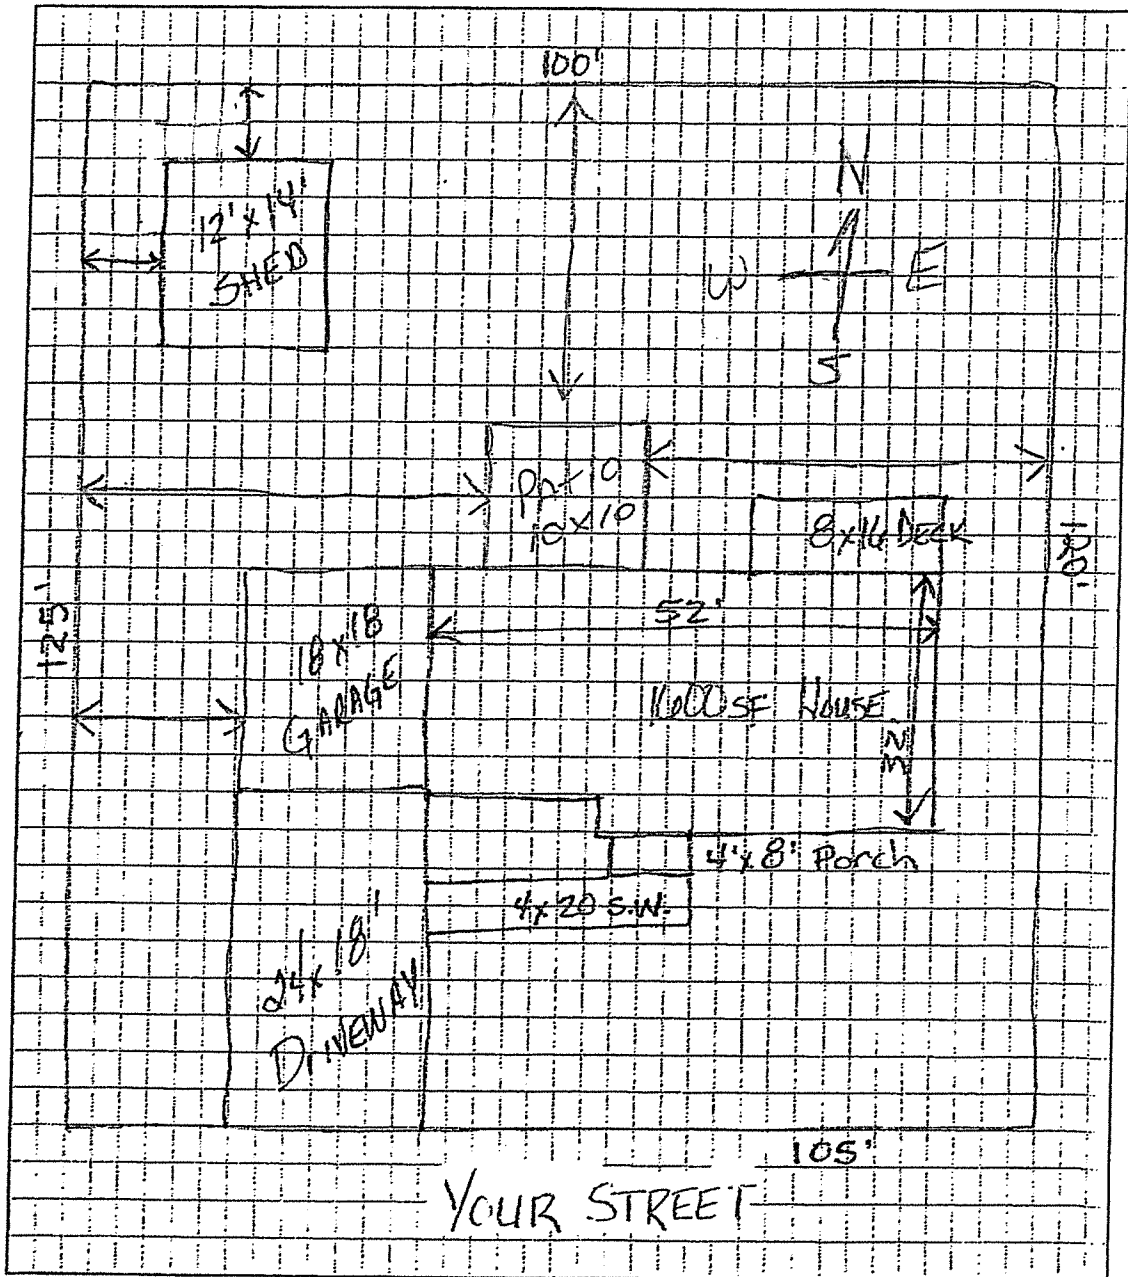 100'
N
12'x14'
SHED
W
E
S
Patio
10x10
8x16 DECK
125'
52'
18x18
GARAGE
1600SF HOUSE
32'
4'x8' Porch
4x20 S.W.
24x18'
DRIVEWAY
105'
YOUR STREET